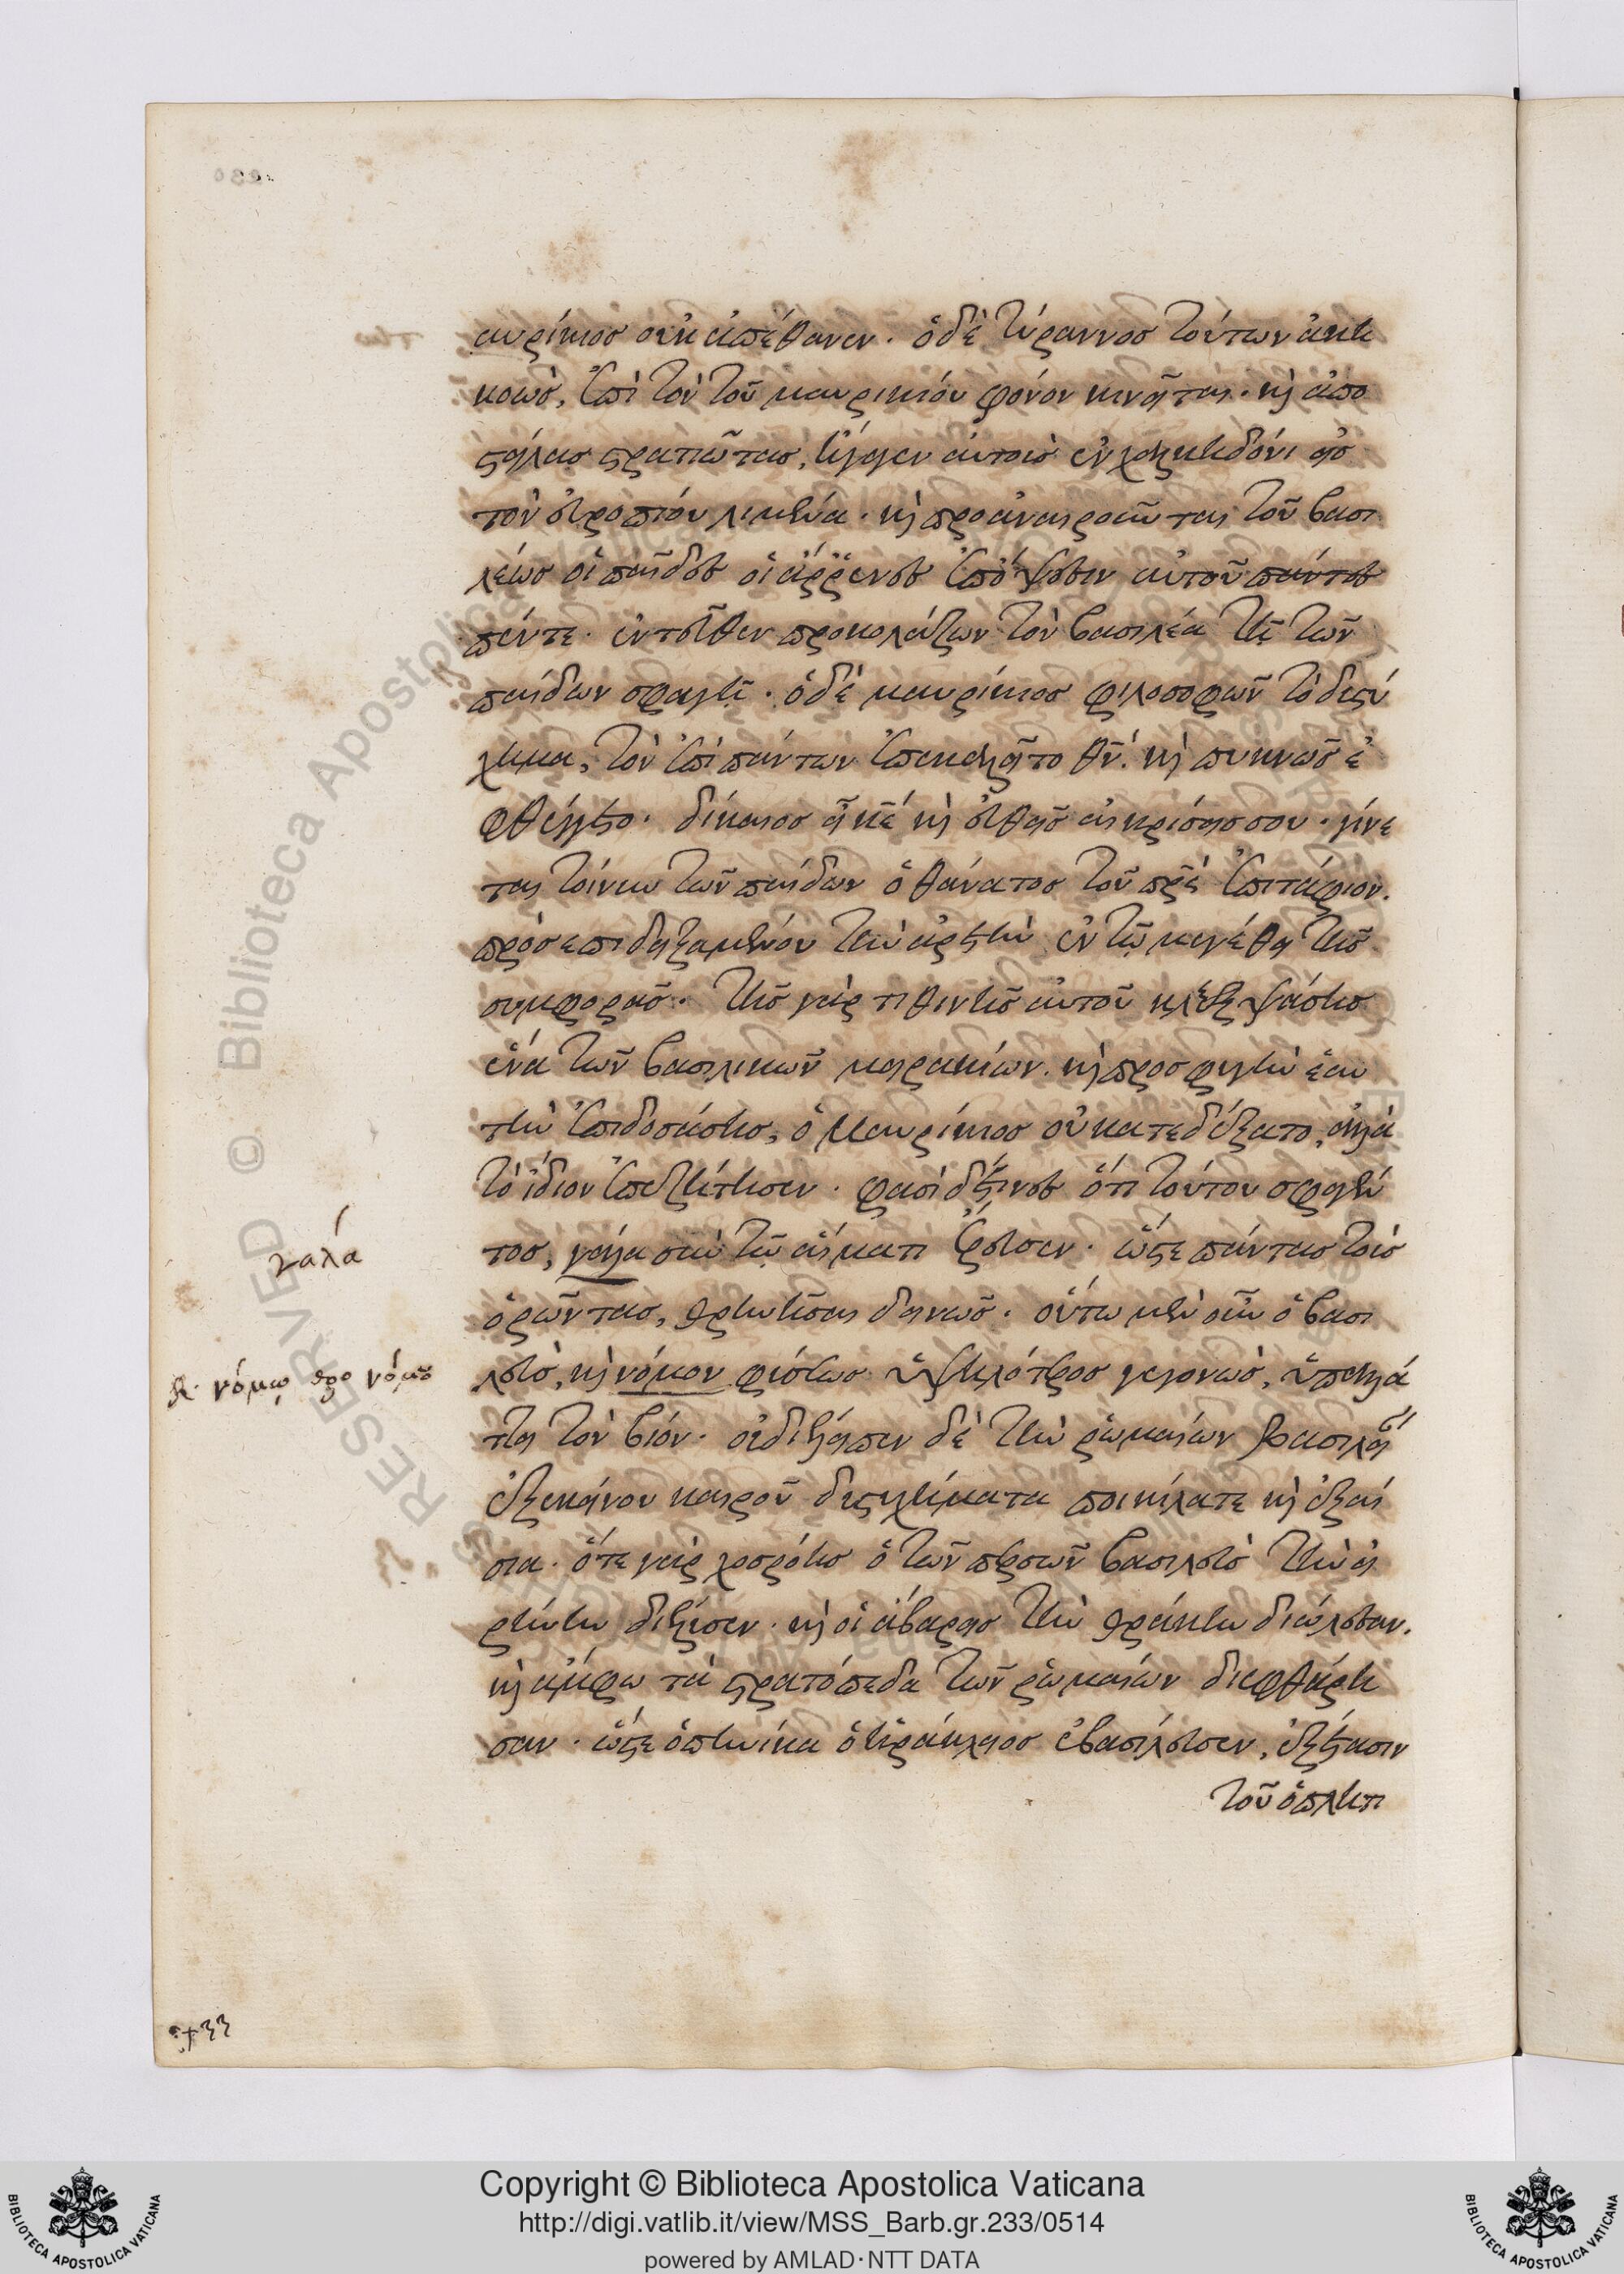 αυρίκιος οὐκ ἀπέθανεν. ὁ δὲ τύραννος τούτων ἀκη
κοὼς, ἐπὶ τὸν τοῦ μαυρικίου φόνον κινεῖται. καὶ ἀπο
στείλας στρατιώτας, ἤγαγεν αὐτοὺς ἐν χαλκηδόνι εἰς
τὸν εὐτροπίου λιμένα. καὶ προαναιροῦνται τοῦ βασι
λέως οἱ παῖδες οἱ ἄρρενες ἐπόψεσιν αὐτοῦ πάντες
πέντε. ἐντεῦθεν προκολάζων τὸν βασιλέα τῇ τῶν
παίδων σφαγῇ. ὁ δὲ μαυρίκιος φιλοσοφῶν τὸ δυστύ
χημα, τὸν ἐπὶ πάντων ἐπεκαλεῖτο θν. καὶ πυκνῶς ἐ
φθέγγετο. δίκαιος εἶ κε καὶ εὐθεῖς αἱ κρίσεις σου. γίνε
ται τοίνυν τῶν παίδων ὁ θάνατος τοῦ πρς ἐπιτάφιον.
προσεπιδειξαμένου τὴν ἀρετὴν ἐν τῷ μεγέθει τῆς
συμφορᾶς. τῆς γὰρ τιθηνῆς αὐτοῦ κλεψάσης
ἕνα τῶν βασιλικῶν μειρακίων. καὶ πρὸς σφαγὴν ἑαυ
τὴν ἐπιδοσάσης, ὁ Μαυρίκιος οὐ κατεδέξατο, ἀλλὰ
τὸ ἴδιον ἐπεζήτησεν. φασὶ δέ τινες ὅτι τούτου σφαγέν
τος, γάλα σὺν τῷ αἵματι ἔρευσεν. ὥστε πάντας τοὺς
ὁρῶντας, θρηνῆσαι δεινῶς. οὕτω μὲν οὖν ὁ βασι
λεὺς, καὶ νόμον φύσεως ὑψηλότερος γεγονὼς, ὑπαλλά
ττει τὸν βίον. οὐ διέλειπεν δὲ τὴν ῥωμαίων βασιλεί
ἐξ ἐκείνου καιροῦ δυστυχήματα ποικίλα τε καὶ ἐξαί
σια. ὅτε γὰρ χοσρόης ὁ τῶν περσῶν βασιλεὺς τὴν εἰ
ρήνην διέλυσεν. καὶ οἱ ἀβάρεις τὴν θράκην διώλεσαν.
καὶ ἄμφω τὰ στρατόπεδα τῶν ῥωμαίων διεφθάρη
σαν. ὥστε ὁπηνίκα ὁ ἡράκλειος ἐβασίλευσεν, ἐξέτασιν
τοῦ ὁπλητι
γάλα
νόμῳ προ νόμου